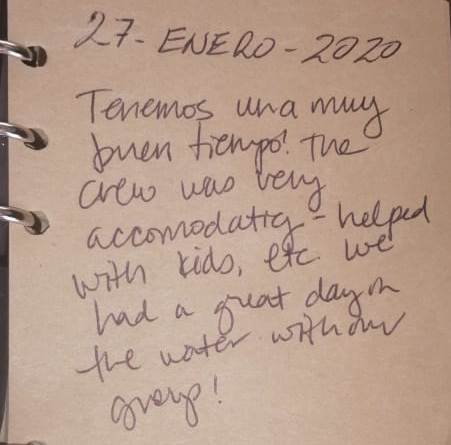 27- ENERO - 2020
Tenemos una muy
buen tiempo! The
crew was very
accomodatig - helped
with kids, etc. We
had a great day on
the water with our
group!